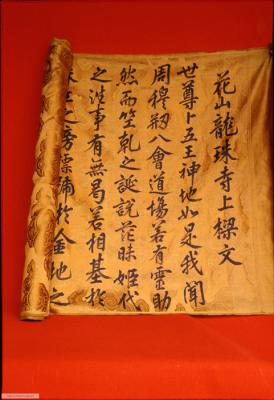 花山龍珠寺上樑文
世尊卜五王神地如是我聞
周穆剏八會道場若有靈助
然而竺乾之誕說茫昧姬代
之洪事有無曷若相基於
之旁票蒲於金地之